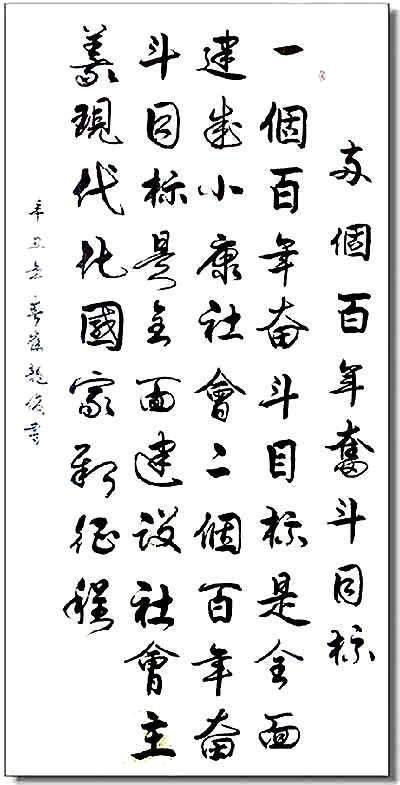 两個百年奮斗目标
一個百年奋斗目标是全面
建成小康社會二個百年奋
斗目标是全面建设社會主
義現代化國家新征程
辛丑春龍書